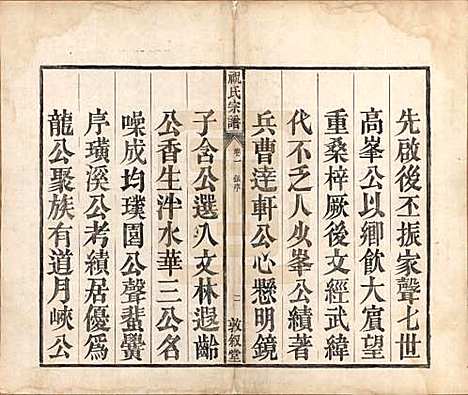 先啟後丕振家聲七世
高峯公以鄉飲大賔望
重桑梓厥後文經武緯
代不乏人少峯公績著
兵曹達軒公心懸明鏡
祝氏宗譜
卷一
二
敦叙堂
子含公選入文林遐齡
公香生泮水華三公名
噪成均璞園公聲蜚黌
序璜溪公考績居優為
龍公聚族有道月峽公